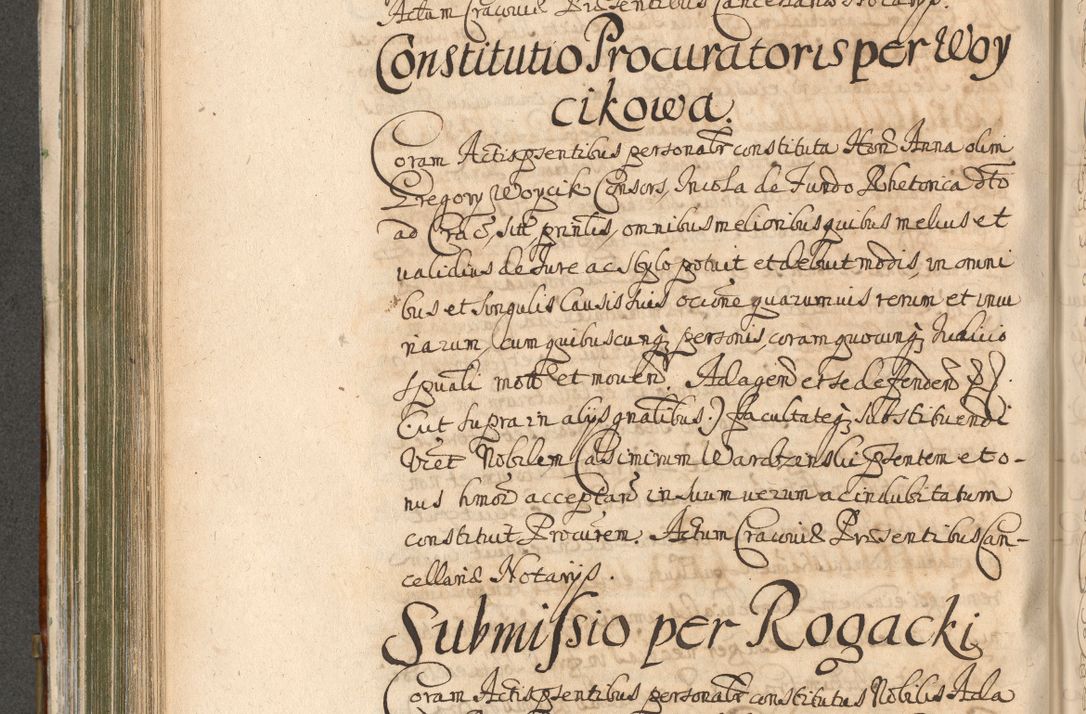 Actum Cracoviæ Præsentibus Cancellariæ Notarijs.
Constitutio Procuratoris per Woy
cikowa.
Coram Actis pſentibus personalr constituta Hon̄ Anna olim
Gregorij Woycik Consors, Incola de Fundo Rhetorica dto
ad Crac̄, sitt, prinlis, omnibus melioribus quibus melius et
validius de Jure ac stylo potuit et debuit modis, in omni
bus et singulis Causis suis ocione quarumvis rerum et iniu
riarum, cum quibuscunq₃ personis, coram quocunq₃ Judicio
spuali mott et movend. Ad agend et se defendend
(ut supra in alijs gnalibus.) facultateq₃ substituendi
Vict Nobilem Casimirum Wardzanski pſentem et o-
nus hmoī acceptan̄ in suum verum ac indubitatum
constituit Procurem. Actum Cracoviæ Præsentibus Can-
cellariæ Notarijs.
Submiſsio per Rogacki
Coram Actis pſentibus personalr constitutus Nobilis Ada